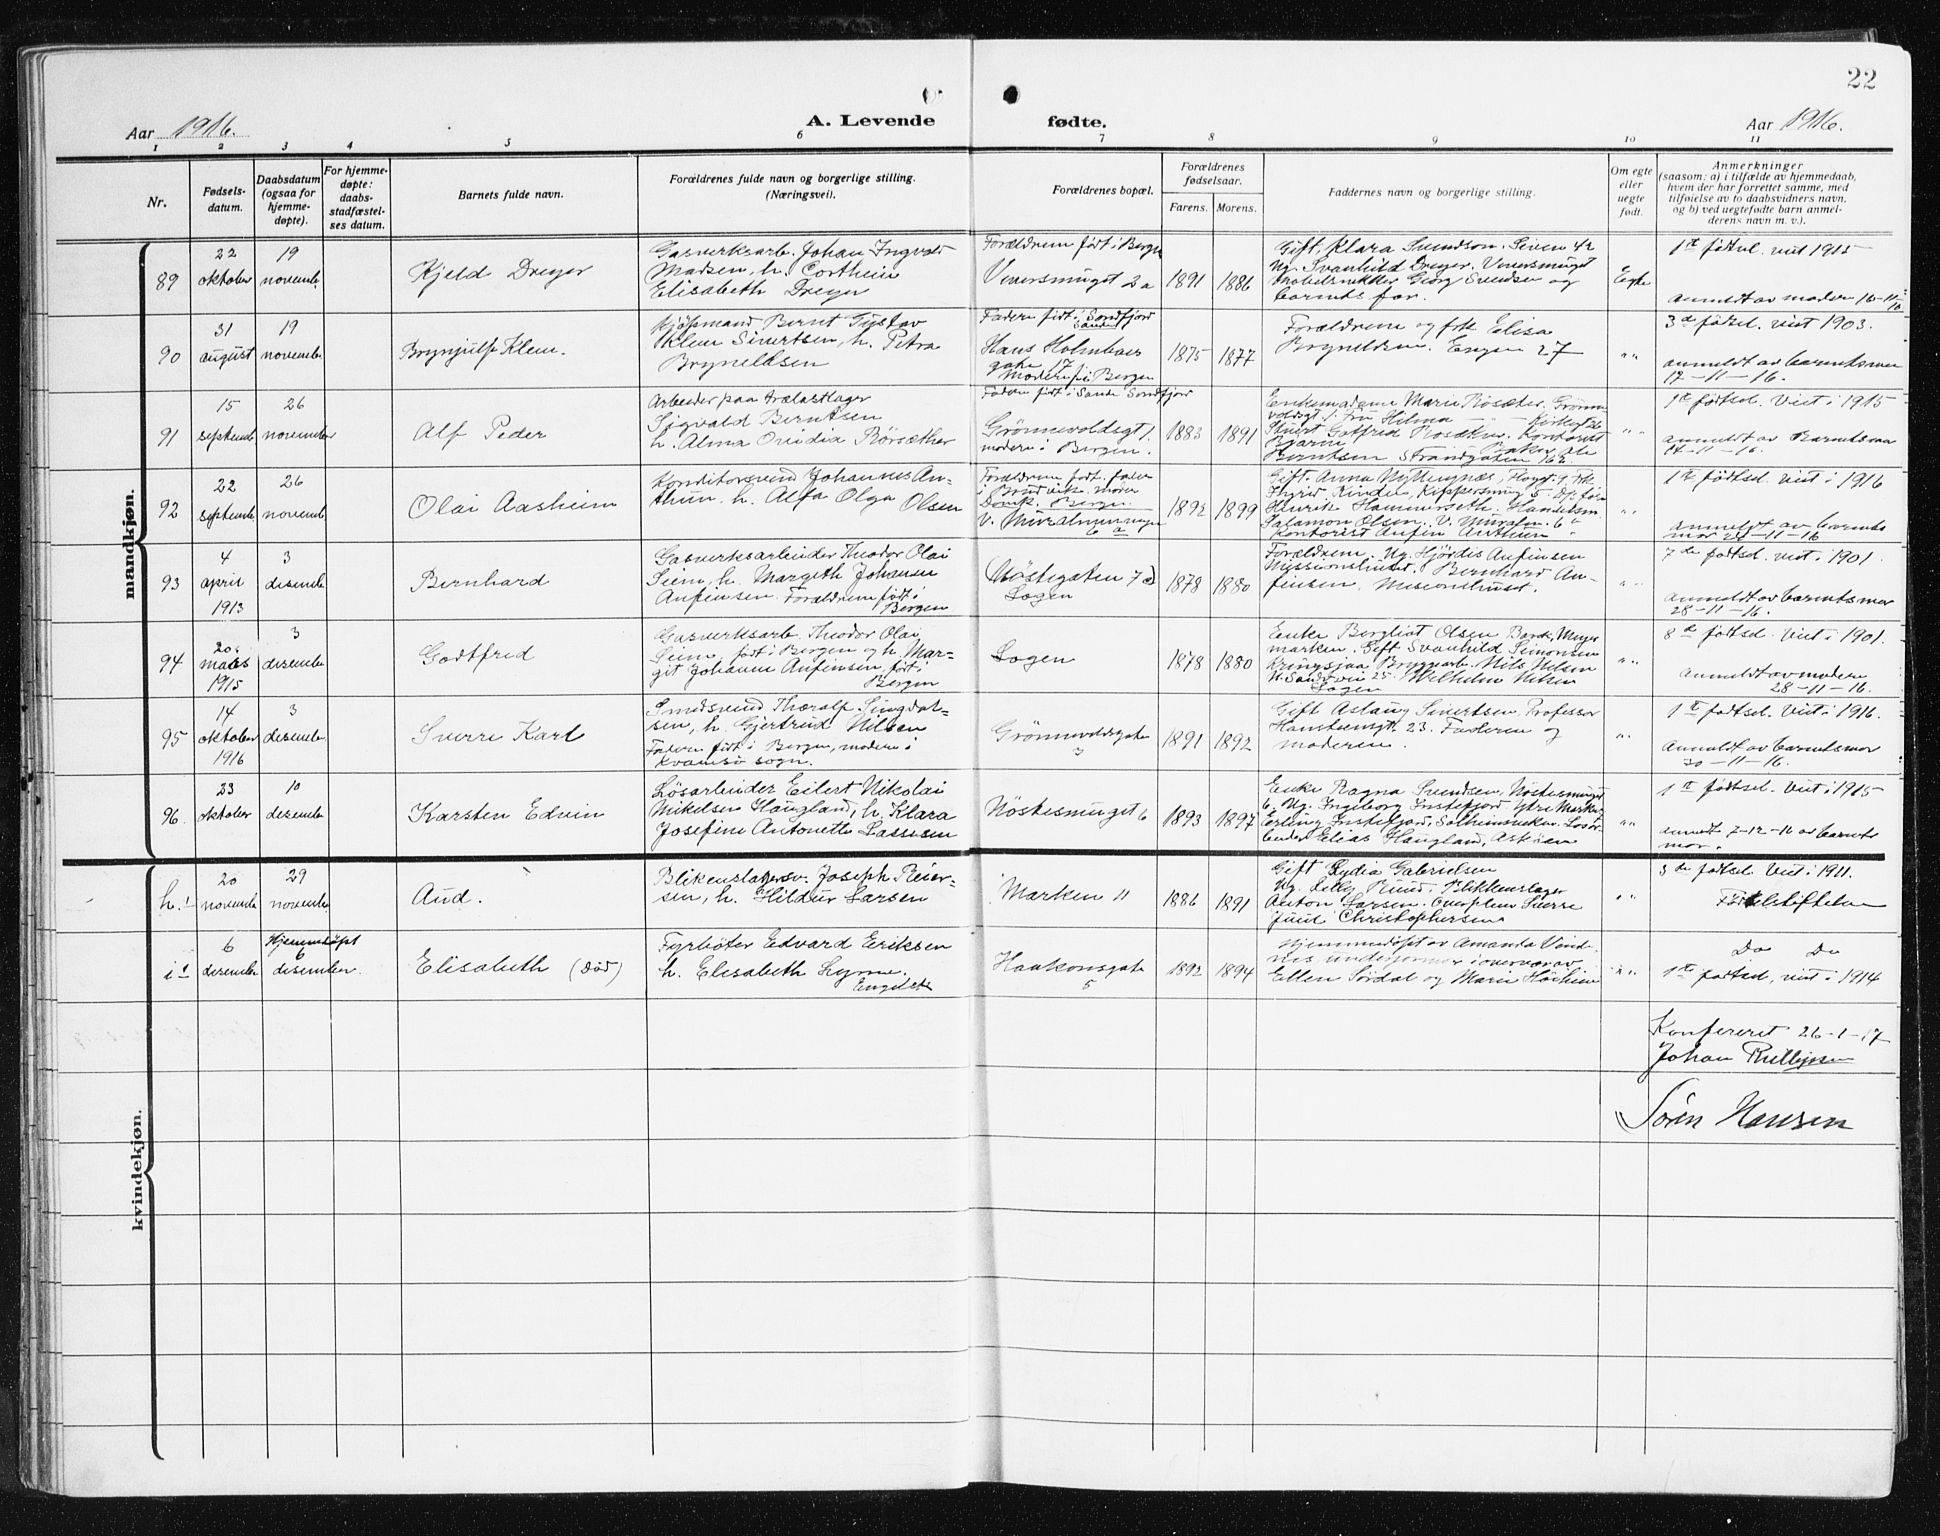 22
Aar 1916.
A. Levende fødte.
Aar 1916.
1 2 3 4 5 6 7 8 9 10 11
Nr.
Fødsels-
datum.
Daabsdatum
(ogsaa for
hjemme-
døpte).
For hjemme-
døpte:
daabs-
stadfæstel-
ses datum.
Barnets fulde navn.
Forældrenes fulde navn og borgerlige stilling.
(Næringsvei).
Forældrenes bopæl.
Forældrenes
fødselsaar.
Farens. Morens.
Faddernes navn og borgerlige stilling.
Om egte
eller
uegte
født.
Anmerkninger
(saasom: a) i tilfælde av hjemmedaab,
hvem der har forrettet samme, med
tilføielse av to daabsvidners navn,
og b) ved uegtefødte barn anmel-
derens navn m. v.).
mandkjøn.
89
22
oktober
19
novemb.
Kjeld Dreyer
Gasverksarb. Johan Ingvald
Madsen, h. Corthein
Elisabeth Dreyer
Forældrene født i Bergen
Veversmuget 2a
1891 1886
Gift Klara Svendson.
Ug. Svanhild Dreyer. Veversmuget
Møbelsnekker Georg Svendsen og
barnets far.
Egte
1ste fødsel. viet 1915
anmeldt av moder 16-11-16
90
31
august
19
novemb.
Brynjulf Klem.
Kjøpmand Bernt Gustav
Klem Sivertsen, h. Petra
Bryneldsen
Fader født i Sande Søndfjord
Hans Holmboes
gate 17
Moderen f. i Bergen
1875 1877
Forældrene og frk Elisa
Bryneldsen. Engen 27
" "
3de fødsel. viet 1903.
anmeldt av barnets mor
17-11-16.
91
15
septemb
26
november
Alf Peder
Arbeider paa trælastlager
Sigvald Berntsen
h. Alma Ovidia Rørsæther
Fader født i Sande Søndfjord
Grønnevoldsgt 1.
moder i Bergen.
1883 1891
Enkemadame Marie Rosæter, Grønne
voldsgt 1. Fru Hilma
Gotfred Kontorist
Bjarne
Berntsen Strandgaten 162
" "
1ste fødsel. Viet i 1915
anmeldt av Barnets mor
17-11-16.
92
22
septemb
26
novemb
Olai Aasheim
Konditorsvend Johannes An-
thun. h. Alfa Olga Olsen
Forældrene født. fader
i Bruvik. moder
Bergen.
V. Muralmenningen
6 a
1892 1899
Gift. Anna
Henrik Hammerseth. Handelsm.
Salamon Olsen. V. Muralm. 6
Kontorist Anfin Anthun
"
1ste fødsel. viet i 1916
anmeldt av barnets
mor 24-11-16
93
4
april
1913
3
desemb
Bernhard
Gasverksarbeider Theodor Olai
Seim, h. Margith Johanne
Anfinsen. Forældrene født i
Bergen
Nøstegaten 7d
Logen
1878 1880
Forældrene. Ug. Hjørdis Anfinsen
Missionshuset. Bernhard An-
finsen. Missionshuset.
" "
7de fødsel. viet i 1901.
anmeldt av barnets mor
28-11-16.
94
20.
mars
1915
3
desembe
Godtfred
Gasverksarb. Theodor Olai
Seim, født i Bergen og h. Mar-
git Johanne Anfinsen, født i
Bergen
Logen
1878 1880
Enke Bergliot Olsen
marken. Gift Svanhild Simonsen
Kringsjaa, Bryggearb. Nils Nilsen
N. Sandvei 25. Wilhelm Nilsen
Logen
" "
8de fødsel. Viet i 1901.
Anmeldt av moder
28-11-16.
95
14
oktober
1916
3
desembe
Sverre Karl
Smedsvend Thoralf Singdal-
sen, h. Gjertrud Nilsen
Fader født i Bergen, moder i
Kvamsø sogn.
Grønnevoldsgate
3
1891 1892
Gift Aslaug Sivertsen. Professor
Hansteensgt. 23. Faderen og
moderen.
" "
1ste fødsel. Viet i 1916.
Anmeldt av barnets mor
30-11-16.
96.
23
oktober
10
desembe
Karsten Edvin
Løsarbeider Eilert Nikolai
Mikelsen Haugland, h. Klara
Josefine Antonette Lassesen
Nøstesmuget 6
1893 1897
Enke Ragna Svendsen, Nøstesmuget
6. Ug. Ingeborg Instefjord, Ytre Marken
Erling Instefjord, Solheimsviken. Løsar-
beider Elias Haugland, Askøen
" "
1ste fødsel. Viet i 1915
anmeldt 7-12-16 av barnets
mor.
kvindekjøn.
h.1
20
novembe
29
november
Aud.
Blikenslagersv. Joseph Reier-
sen, h. Hildur Larsen
Marken 11
1886 1891
Gift Lydia Gabrielsen
Ug. Lilly Rund. Blikkenslager
Anton Larsen. Sverre
Juul Christophersen
" "
3de fødsel Viet i 1911.
Fødselstiftelsen
i1
6
desember
Hjemmedøpt
6
desember.
Elisabeth (død)
Fyrbøter Edvard Eriksen
h. Elisabeth Lynne.
Haakonsgate
5
1892 1894
Hjemmedøpt av Amanda Vinde-
nes i overvær av
Ellen Sørdal og Marie Høiheim
" "
Do Do
1ste fødsel, viet i 1914
Konfereret 26-1-17
Johan Phillipsen
Søren Hansen